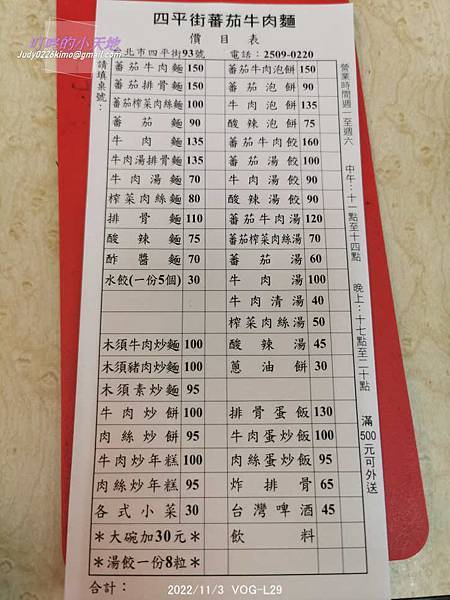 叮咚的小天地
Judy0226kimo@gmail.com
四平街蕃茄牛肉麵
價目表
台北市四平街93號 電話：2509-0220
請填桌號：
蕃茄牛肉麵 150 蕃茄牛肉泡餅 150
蕃茄排骨麵 150 蕃茄泡餅 90
蕃茄榨菜肉絲麵 100 牛肉泡餅 135
蕃茄麵 90 酸辣泡餅 75
牛肉麵 135 蕃茄牛肉餃 160
牛肉湯排骨麵 135 蕃茄湯餃 100
牛肉湯麵 70 牛肉湯餃 90
榨菜肉絲麵 80 酸辣湯餃 90
排骨麵 110 蕃茄牛肉湯 120
酸辣麵 75 蕃茄榨菜肉絲湯 70
酢醬麵 70 蕃茄湯 60
水餃(一份5個) 30 牛肉湯 100
牛肉清湯 40
榨菜肉絲湯 50
木須牛肉炒麵 100 酸辣湯 45
木須豬肉炒麵 100 蔥油餅 30
木須素炒麵 95
牛肉炒餅 100 排骨蛋飯 130
肉絲炒餅 95 牛肉蛋炒飯 100
牛肉炒年糕 100 肉絲蛋炒飯 95
肉絲炒年糕 95 炸排骨 65
各式小菜 30 台灣啤酒 45
＊大碗加30元＊ 飲料
＊湯餃一份8粒＊
合計：
營業時間週一至週六
中午：十一點至十四點
晚上：十七點至二十點
滿500元可外送
2022/11/3 VOG-L29